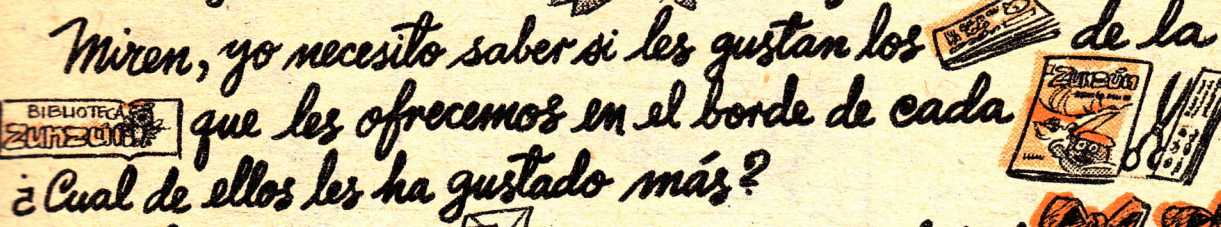 Miren, yo necesito saber si les gustan los de la
BIBLIOTECA
ZUNZUN que les ofrecemos en el borde de cada
ZUNZÚN
¿Cual de ellos les ha gustado más?